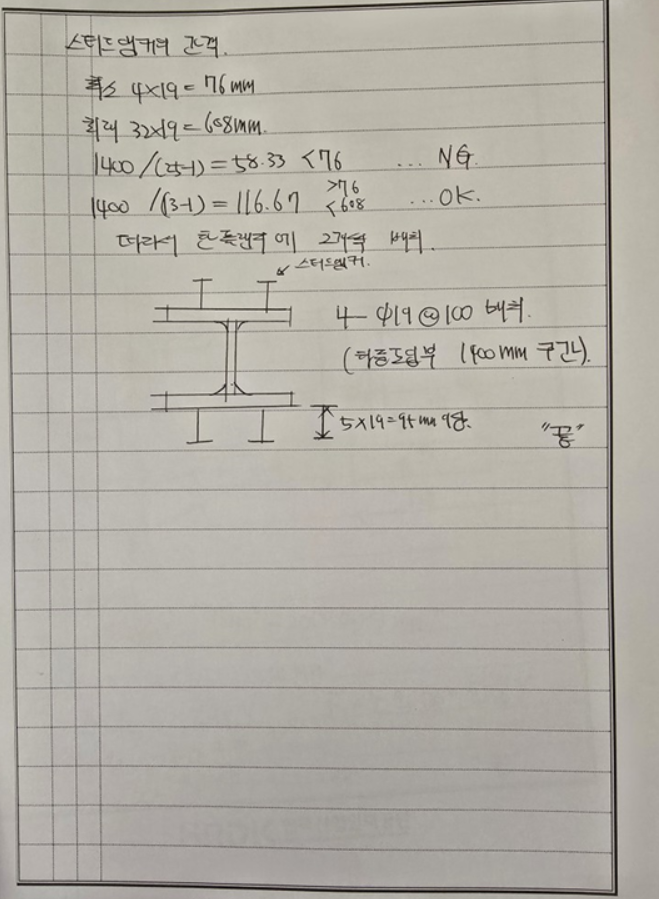 스터드앵커의 간격.
최소 4×19 = 76mm
최대 32×19 = 608mm.
1400 / (25-1) = 58.33 < 76 ... NG.
1400 / (13-1) = 116.67 >76 <608 ... OK.
따라서 한 플랜지에 2개씩 배치.
스터드앵커.
4- φ19 @100 배치.
(하중도입부 1400mm 구간).
5×19=95mm 이상.
"끝"